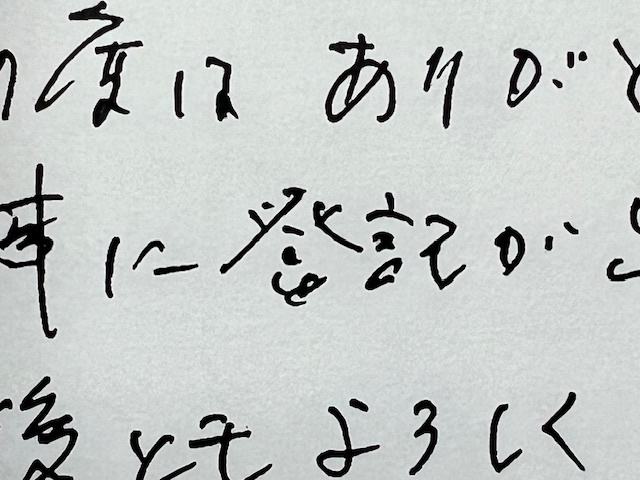 の度は ありがと
事に登記が
後とも よろしく